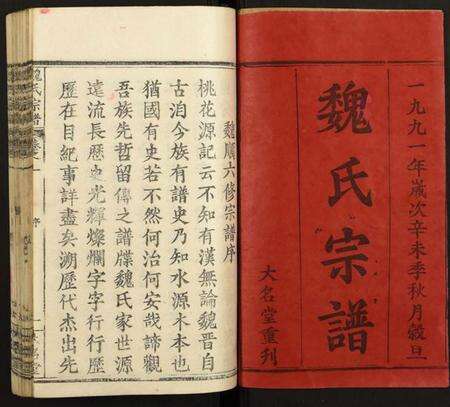 一九九一年歲次辛未季秋月穀旦
魏氏宗譜
大名堂重刊
魏顺六修宗譜序
桃花源記云不知有漢無論魏晋自
古洎今族有譜史乃知水源木本也
猶國有史若不然何治何安哉諦觀
吾族先哲留傳之譜牒魏氏家世源
遠流長歷史光輝燦爛字字行行歷
歷在目紀事詳盡矣溯歷代杰出先
魏氏宗譜 卷之一
序